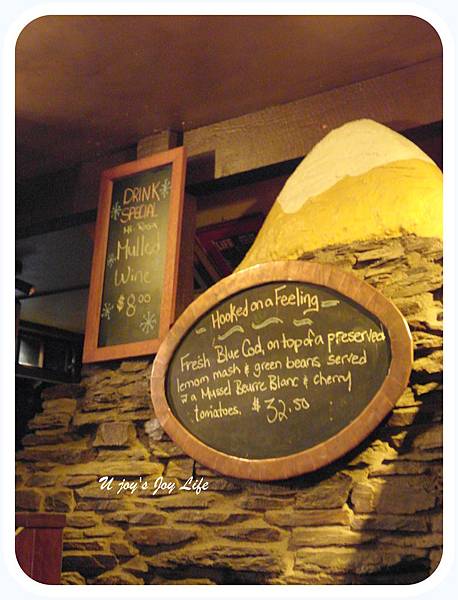 DRINK
SPECIAL
Mulled
Wine
$8.00
Hooked on a Feeling
Fresh Blue Cod, on top of a preserved
lemom mash & green beans, served
w a Mussel Beurre Blanc & cherry
tomatoes. $32.50
U joy's Joy Life